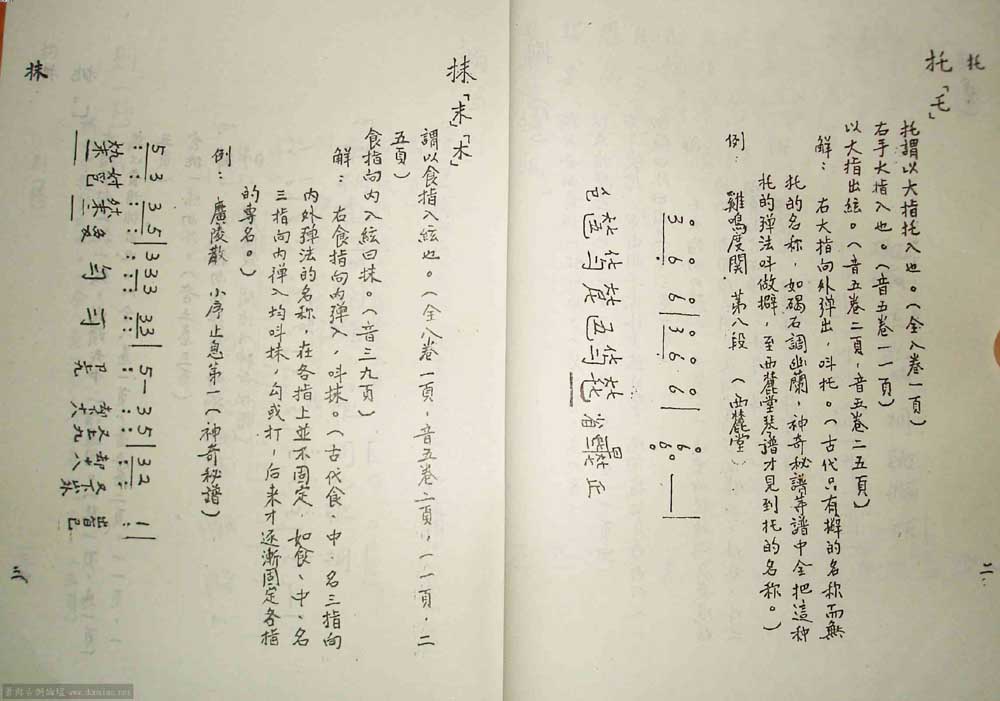 托
托「乇」
托謂以大指托入也。(全八卷一頁)
右手大指入也。(音五卷一一頁)
以大指出絃。(音五卷二頁，音五卷二五頁)
解：右大指向外弹出，叫托。(古代只有擘的名称而無
托的名称，如碣石調幽蘭，神奇秘譜等譜中全把這种
托的弹法叫做擘，至西麓堂琴譜才見到托的名称。)
例：雞鳴度関 第八段 (西麓堂)
3 6 6 | 3 6 6 | 6 — |
二
抹「末」「木」
謂以食指入絃也。(全八卷一頁，音五卷二頁，一一頁，二
五頁)
食指向内入絃曰抹。(音三九頁)
解：右食指向内弹入，叫抹。(古代食、中、名三指向
内外弹法的名称，在各指上並不固定，如食、中、名
三指向内弹入均叫抹，勾或打，后来才逐漸固定各指
的專名。)
例：廣陵散 小序止息第一(神奇秘譜)
5 3 3 5 | 3 3 3 3 3 | 5 — 3 5 | 3 2 1 |
抹
三